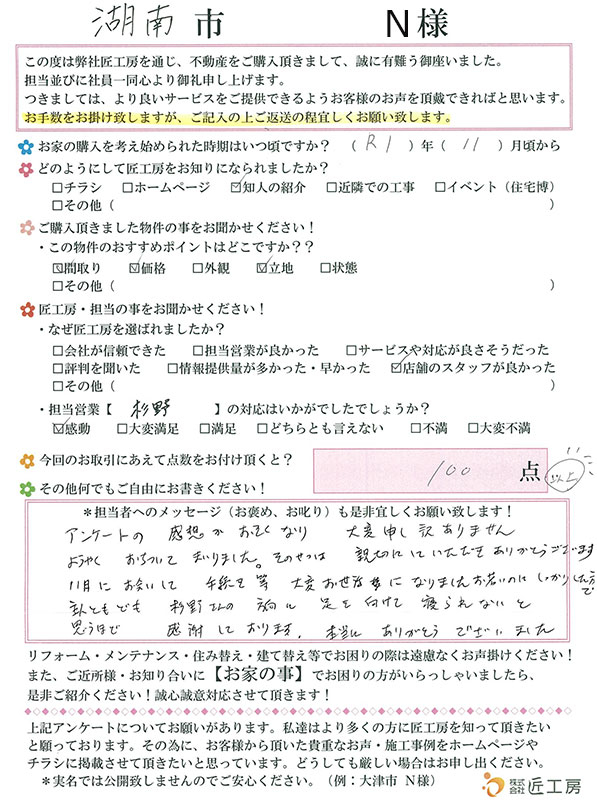 湖南市 N様
この度は弊社匠工房を通じ、不動産をご購入頂きまして、誠に有難う御座いました。
担当並びに社員一同心より御礼申し上げます。
つきましては、より良いサービスをご提供できるようお客様のお声を頂戴できればと思います。
お手数をお掛け致しますが、ご記入の上ご返送の程宜しくお願い致します。
お家の購入を考え始められた時期はいつ頃ですか？ （ R1 ）年（ 11 ）月頃から
どのようにして匠工房をお知りになられましたか？
□チラシ □ホームページ ☑知人の紹介 □近隣での工事 □イベント（住宅博）
□その他（ ）
ご購入頂きました物件の事をお聞かせください！
・この物件のおすすめポイントはどこですか？？
☑間取り ☑価格 □外観 ☑立地 □状態
□その他（ ）
匠工房・担当の事をお聞かせください！
・なぜ匠工房を選ばれましたか？
□会社が信頼できた □担当営業が良かった □サービスや対応が良さそうだった
□評判を聞いた □情報提供量が多かった・早かった ☑店舗のスタッフが良かった
□その他（ ）
・担当営業【 杉野 】の対応はいかがでしたでしょうか？
☑感動 □大変満足 □満足 □どちらとも言えない □不満 □大変不満
今回のお取引にあえて点数をお付け頂くと？ 100 点 以上
その他何でもご自由にお書きください！
＊担当者へのメッセージ（お褒め、お叱り）も是非宜しくお願い致します！
アンケートの 感想が おそくなり 大変申し訳ありません
ようやく おちついて まいりました。そのせつは 親切にしていただき ありがとうございます
11月に お会いして 手続き等 大変お世話になりました お若いのに しっかりした方で
主人ともども 杉野さんの 方向に 足を向けて 寝られないと
思うほど 感謝しております。本当に ありがとう ございました
リフォーム・メンテナンス・住み替え・建て替え等でお困りの際は遠慮なくお声掛けください！
また、ご近所様・お知り合いに【お家の事】でお困りの方がいらっしゃいましたら、
是非ご紹介ください！誠心誠意対応させて頂きます！
上記アンケートについてお願いがあります。私達はより多くの方に匠工房を知って頂きたい
と願っております。その為に、お客様から頂いた貴重なお声・施工事例をホームページや
チラシに掲載させて頂きたいと思っています。どうしても厳しい場合はお申し出ください。
＊実名では公開致しませんのでご安心ください。（例：大津市 N様）
株式会社 匠工房